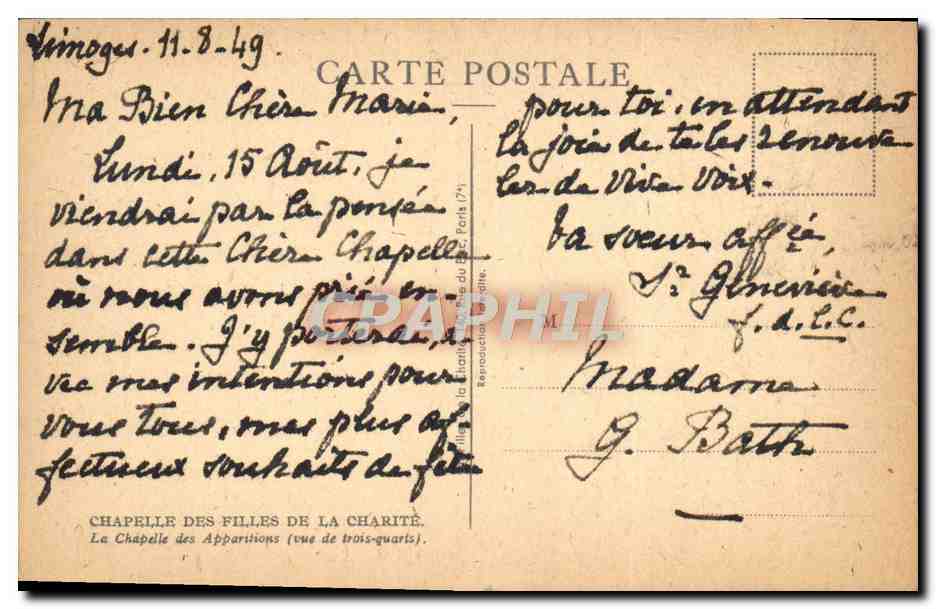 Limoges. 11-8-49.
CARTE POSTALE
Ma Bien Chère Marie,
Lundi, 15 Août, je
viendrai par la pensée
dans cette Chère Chapelle
où nous avons prié en-
semble. J'y porterai, a-
vec mes intentions pour
vous tous, mes plus af-
fectueux souhaits de fête
pour toi, en attendant
la joie de te les renouve
ler de vive voix.
Ta soeur affée,
Sr Geneviève
f. d. l. C.
M
Madame
G. Bath
Filles de la Charité, Rue du Bac, Paris (7e)
Reproduction interdite.
CPAPHIL
CHAPELLE DES FILLES DE LA CHARITÉ.
La Chapelle des Apparitions (vue de trois-quarts).